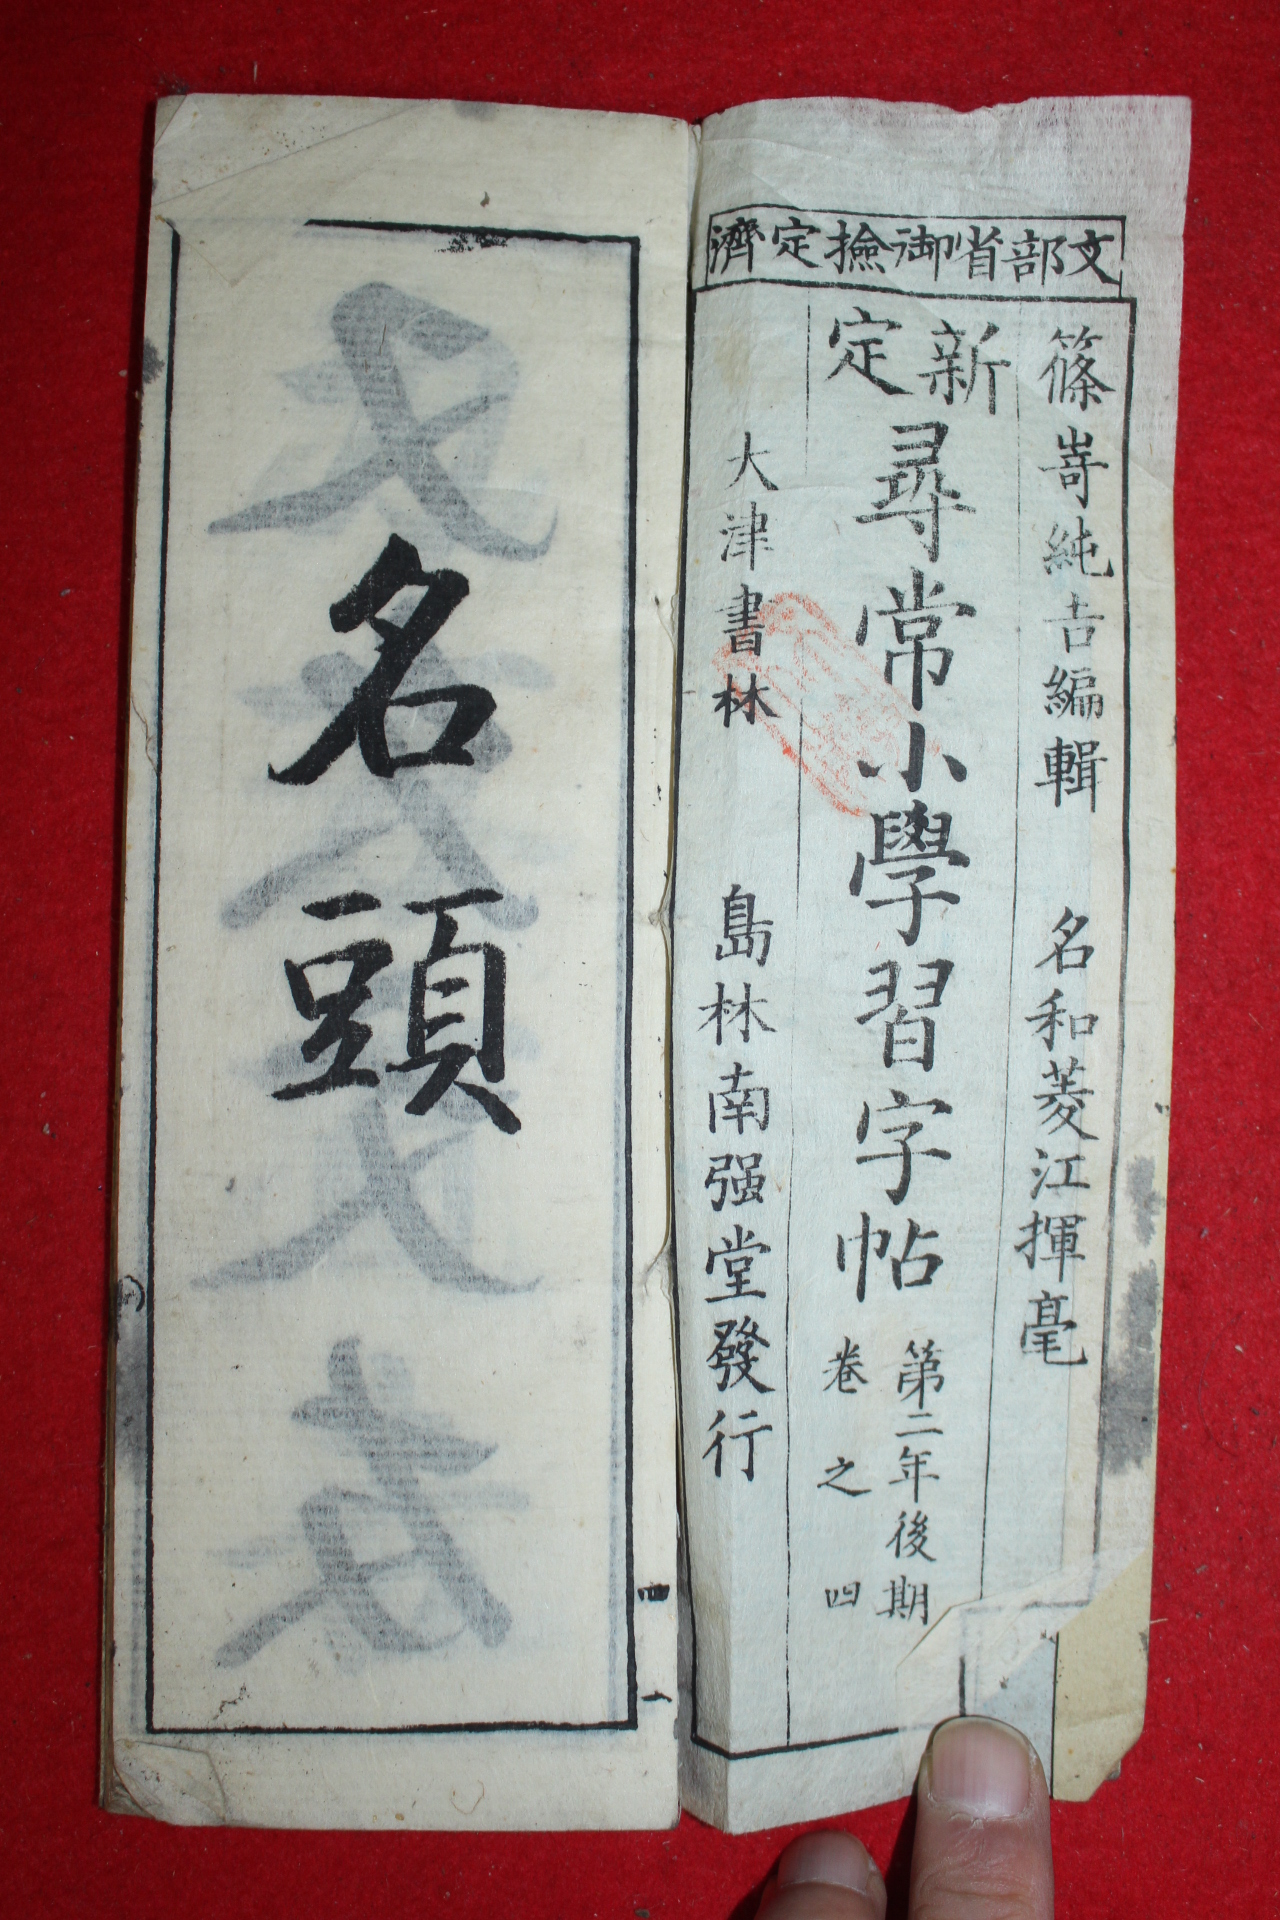 文部省御撿定濟
篠嵜純吉編輯　名和菱江揮毫
新定
尋常小學習字帖
第二年後期
卷之四
大津書林　島林南强堂發行
名頭
四
一